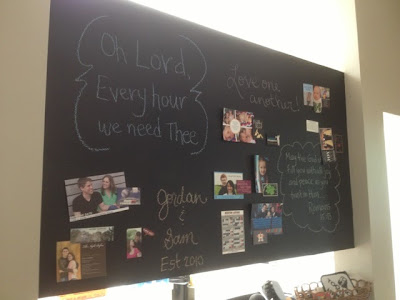 Oh Lord,
Every hour
we need Thee
Love one
another!
May the God of
fill you with all joy
and peace as you
trust in Him.
Romans
Jordan
&
Sam
Est 2010